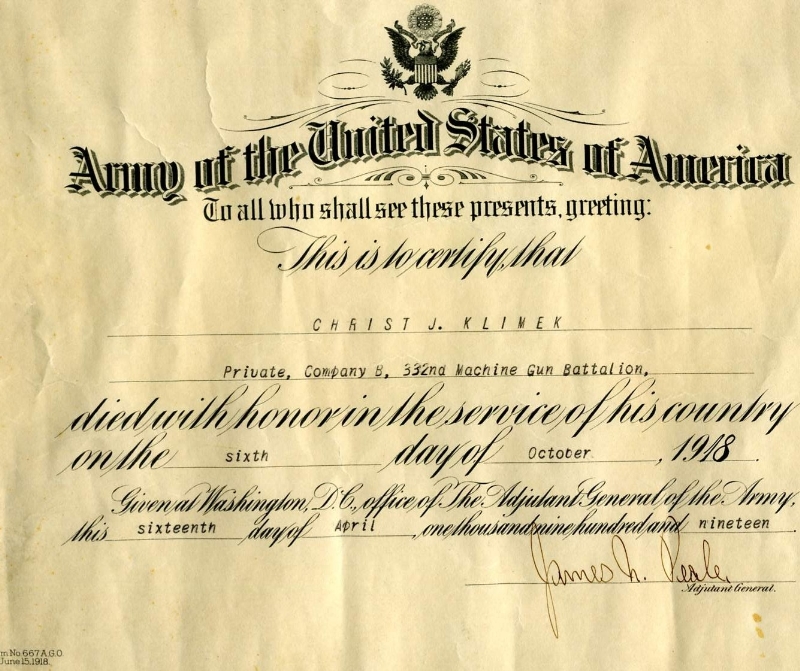 Army of the United States of America
To all who shall see these presents, greeting:
This is to certify, that
CHRIST J. KLIMEK
Private, Company B, 332nd Machine Gun Battalion,
died with honor in the service of his country
on the sixth day of October, 1918.
Given at Washington, D.C., office of The Adjutant General of the Army,
this sixteenth day of April, one thousand nine hundred and nineteen
James
Adjutant General.
m No. 667 A.G.O.
June 15, 1918.